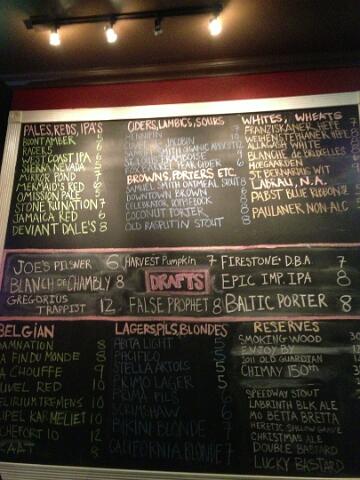 PALES, REDS, IPA'S
BONT AMBER 5
RACER 5 6
WEST COAST IPA
SIERRA NEVADA 5
MIRROR POND 7
MERMAID'S RED 8
OMISSION PALE
STONE RUINATION 7
JAMAICA RED 6
DEVIANT DALE'S 8
CIDERS, LAMBICS, SOURS
HENNIPIN 7
JACOBIN 10
SAMUEL SMITH ORGANIC APRICOT 12
FRAMBOISE 9
PEAR CIDER 6
BROWNS, PORTERS ETC.
SAMUEL SMITH OATMEAL STOUT 8
DOWNTOWN BROWN 6
CELEBRATOR DOPPLEBOCK 8
COCONUT PORTER 8
OLD RASPUTIN STOUT 8
WHITES, WHEATS
FRANZISKANER HEFE 7
WEIHENSTEPHANER HEFE
ALLAGASH WHITE
BLANCHE de BRUXELLES
HOEGAARDEN
ST BERNARDUS WIT
LAGERS, N.A.
PABST BLUE RIBBON
PAULANER NON-ALC
JOE'S PILSNER 6
BLANCH DE CHAMBLY 8
GREGORIUS TRAPPIST 12
HARVEST PUMPKIN 7
DRAFTS
FALSE PROPHET 8
FIRESTONE D.B.A. 7
EPIC IMP. IPA 8
BALTIC PORTER 8
BELGIAN
DAMNATION 8
LA FIN DU MONDE 8
LA CHOUFFE 9
DUVEL RED 10
DELIRIUM TREMENS 10
TRIPEL KARMELIET 10
ROCHEFORT 10 12
8
LAGERS, PILS, BLONDES
ABITA LIGHT 5
PACIFICO 5
STELLA ARTOIS 5
EKIMO LAGER 5
PRIMA PILS 6
SCRIMSHAW 6
BIKINI BLONDE 7
CALIFORNIA BLONDE 7
RESERVES
SMOKING WOOD 30
ENJOY BY
2011 OLD GUARDIAN
CHIMAY 150th
SPEEDWAY STOUT
LABRINTH BLK ALE
MO BETTA BRETTA
HERETIC SHALLOW GRAVE
CHRISTMAS ALE
DOUBLE BASTARD
LUCKY BASTARD